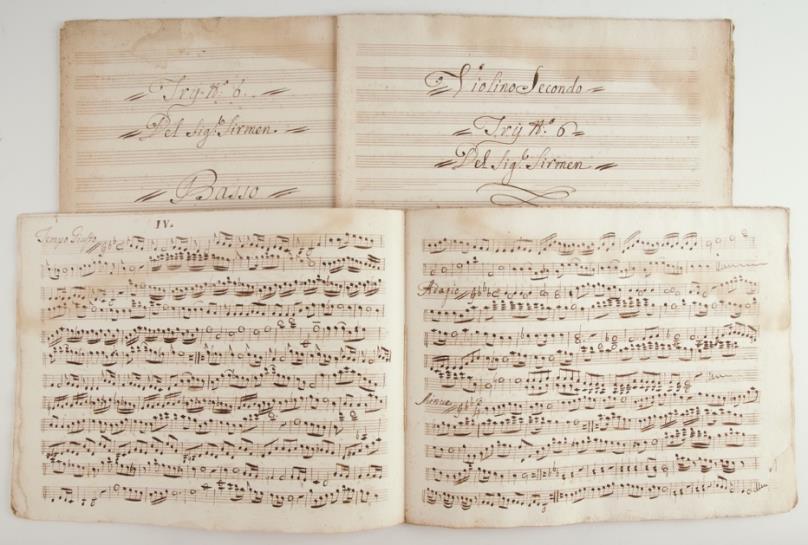 Try. N.º 6.
Del Sig.r Sirmen.
Basso
Violino Secondo
Trij N.º 6
Del Sig.r Sirmen
IV.
Tempo Giusto
Adagio
Minue